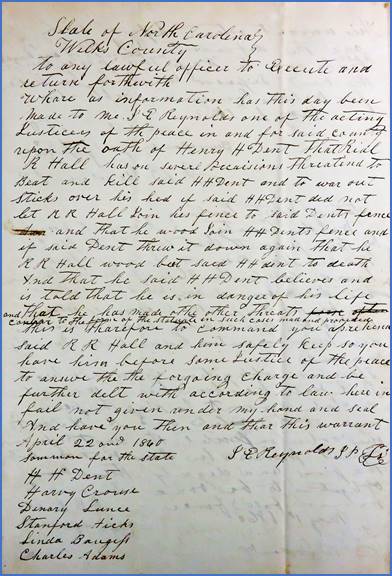 State of North Carolina
Wilks County
to any lawful officer to Execute and
return forthwith
Whare as information has this day been
made to me S E Reynolds one of the acting
Justicees of the peace in and for said county
upon the oath of Henry H Dent That
R Hall has on severl occaisions threatend to
Beat and kill said H H Dent and to war out
Sticks over his hed if said H H Dent did not
let R R Hall Join his fence to said Dents fence
and that he wood Join H H Dents fence and
if said Dent threw it down again that he
R R Hall wood beat said H H Dent to death
And that he said H H Dent believes and
is told that he is in danger of his life
and that he has made the other threats
contrary to the form of the statute in such cases made and provided
this is tharefore to command you
said R R Hall and him safely keep so you
have him before some Justice of the peace
to answer the the forgoing Charge and be
further delt with according to law here in
fail not given under my hand and seal
And have you then and thar this warrant
April 22 ond 1860
Sommon for the state
S E Reynolds J P
H H Dent
Harvy Crouse
Stanford Hicks
Linda Baugess
Charles Adams